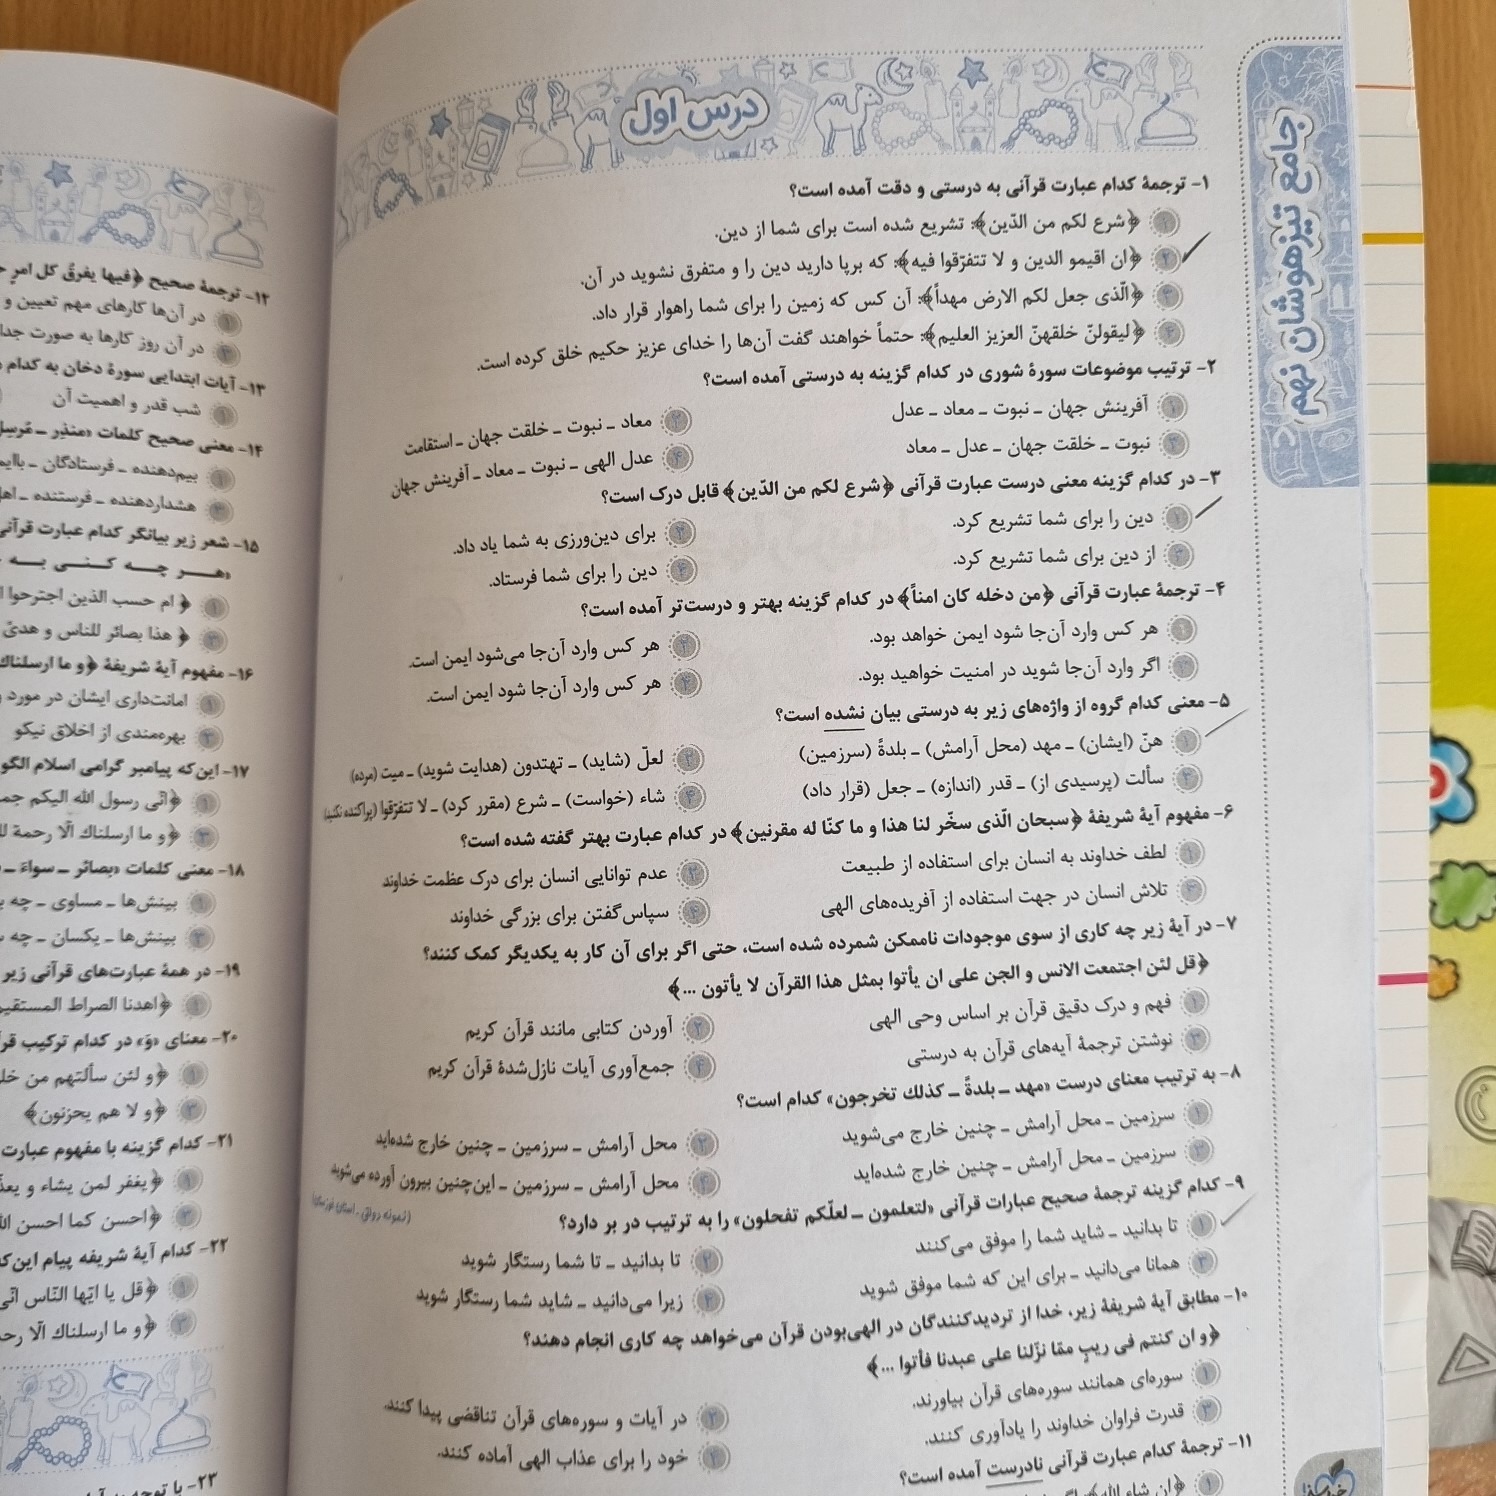 درس اول
جامع تیزهوشان نهم
۱- ترجمهٔ کدام عبارت قرآنی به درستی و دقت آمده است؟
۱ ﴿شرع لکم من الدّین﴾: تشریع شده است برای شما از دین.
۲ ﴿ان اقیمو الدین و لا تتفرّقوا فیه﴾: که برپا دارید دین را و متفرق نشوید در آن.
۳ ﴿الّذی جعل لکم الارض مهداً﴾: آن کس که زمین را برای شما راهوار قرار داد.
۴ ﴿لیقولنّ خلقهنّ العزیز العلیم﴾: حتماً خواهند گفت آن‌ها را خدای عزیز حکیم خلق کرده است.
۲- ترتیب موضوعات سورهٔ شوری در کدام گزینه به درستی آمده است؟
۱ آفرینش جهان ـ نبوت ـ معاد ـ عدل
۲ معاد ـ نبوت ـ خلقت جهان ـ استقامت
۳ نبوت ـ خلقت جهان ـ عدل ـ معاد
۴ عدل الهی ـ نبوت ـ معاد ـ آفرینش جهان
۳- در کدام گزینه معنی درست عبارت قرآنی ﴿شرع لکم من الدّین﴾ قابل درک است؟
۱ دین را برای شما تشریع کرد.
۲ برای دین‌ورزی به شما یاد داد.
۳ از دین برای شما تشریع کرد.
۴ دین را برای شما فرستاد.
۴- ترجمهٔ عبارت قرآنی ﴿من دخله کان امناً﴾ در کدام گزینه بهتر و درست‌تر آمده است؟
۱ هر کس وارد آن‌جا شود ایمن خواهد بود.
۲ هر کس وارد آن‌جا می‌شود ایمن است.
۳ اگر وارد آن‌جا شوید در امنیت خواهید بود.
۴ هر کس وارد آن‌جا شود ایمن است.
۵- معنی کدام گروه از واژه‌های زیر به درستی بیان نشده است؟
۱ هنّ (ایشان) ـ مهد (محل آرامش) ـ بلدةً (سرزمین)
۲ لعلّ (شاید) ـ تهتدون (هدایت شوید) ـ میت (مرده)
۳ سألت (پرسیدی از) ـ قدر (اندازه) ـ جعل (قرار داد)
۴ شاء (خواست) ـ شرع (مقرر کرد) ـ لا تتفرّقوا (پراکنده نگنید)
۶- مفهوم آیهٔ شریفهٔ ﴿سبحان الّذی سخّر لنا هذا و ما کنّا له مقرنین﴾ در کدام عبارت بهتر گفته شده است؟
۱ لطف خداوند به انسان برای استفاده از طبیعت
۲ عدم توانایی انسان برای درک عظمت خداوند
۳ تلاش انسان در جهت استفاده از آفریده‌های الهی
۴ سپاس‌گفتن برای بزرگی خداوند
۷- در آیهٔ زیر چه کاری از سوی موجودات ناممکن شمرده شده است، حتی اگر برای آن کار به یکدیگر کمک کنند؟
﴿قل لئن اجتمعت الانس و الجن علی ان یأتوا بمثل هذا القرآن لا یأتون ...﴾
۱ فهم و درک دقیق قرآن بر اساس وحی الهی
۲ آوردن کتابی مانند قرآن کریم
۳ نوشتن ترجمهٔ آیه‌های قرآن به درستی
۴ جمع‌آوری آیات نازل‌شدهٔ قرآن کریم
۸- به ترتیب معنای درست «مهد ـ بلدةً ـ کذلك تخرجون» کدام است؟
۱ سرزمین ـ محل آرامش ـ چنین خارج می‌شوید
۲ محل آرامش ـ سرزمین ـ چنین خارج شده‌اید
۳ سرزمین ـ محل آرامش ـ چنین خارج شده‌اید
۴ محل آرامش ـ سرزمین ـ این‌چنین بیرون آورده می‌شوید
۹- کدام گزینه ترجمهٔ صحیح عبارات قرآنی «لتعلمون ـ لعلّکم تفحلون» را به ترتیب در بر دارد؟
(نمونه دولتی ـ استان خوزستان)
۱ تا بدانید ـ شاید شما را موفق می‌کنند
۲ تا بدانید ـ تا شما رستگار شوید
۳ همانا می‌دانید ـ برای این که شما موفق شوید
۴ زیرا می‌دانید ـ شاید شما رستگار شوید
۱۰- مطابق آیهٔ شریفهٔ زیر، خدا از تردیدکنندگان در الهی‌بودن قرآن می‌خواهد چه کاری انجام دهند؟
﴿و ان کنتم فی ریبٍ ممّا نزّلنا علی عبدنا فأتوا ...﴾
۱ سوره‌ای همانند سوره‌های قرآن بیاورند.
۲ در آیات و سوره‌های قرآن تناقضی پیدا کنند.
۳ قدرت فراوان خداوند را یادآوری کنند.
۴ خود را برای عذاب الهی آماده کنند.
۱۱- ترجمهٔ کدام عبارت قرآنی نادرست آمده است؟
۱ ﴿ان شاء الله﴾:
۱۲- ترجمهٔ صحیح ﴿فیها یفرق کل امرٍ
۱ در آن‌ها کارهای مهم تعیین و
۳ در آن روز کارها به صورت
۱۳- آیات ابتدایی سورهٔ دخان به کدام
۱ شب قدر و اهمیت آن
۱۴- معنی صحیح کلمات «منذِر ـ مُرسِل
۱ بیم‌دهنده ـ فرستادگان ـ
۳ هشداردهنده ـ فرستنده ـ
۱۵- شعر زیر بیانگر کدام عبارت قرآنی
«هر چه کنی به
۱ ﴿ام حسب الذین اجترحوا
۳ ﴿هذا بصائر للناس و هدیً
۱۶- مفهوم آیهٔ شریفهٔ ﴿و ما ارسلناك
۱ امانت‌داری ایشان در مورد
۳ بهره‌مندی از اخلاق نیکو
۱۷- این‌که پیامبر گرامی اسلام الگو
۱ ﴿انّی رسول الله الیکم
۳ ﴿و ما ارسلناك الّا رحمة
۱۸- معنی کلمات «بصائر ـ سواءَ ـ
۱ بینش‌ها ـ مساوی ـ چه
۳ بینش‌ها ـ یکسان ـ چه
۱۹- در همهٔ عبارت‌های قرآنی زیر
۱ ﴿اهدنا الصراط المستقیم
۲۰- معنای «وَ» در کدام ترکیب
۱ ﴿و لئن سألتهم من
۳ ﴿و لا هم یحزنون﴾
۲۱- کدام گزینه با مفهوم عبارت
۱ ﴿یغفر لمن یشاء و
۳ ﴿احسن کما احسن
۲۲- کدام آیهٔ شریفه پیام
۱ ﴿قل یا ایّها النّاس انّی
۳ ﴿و ما ارسلناك الّا
۲۳- با توجه به